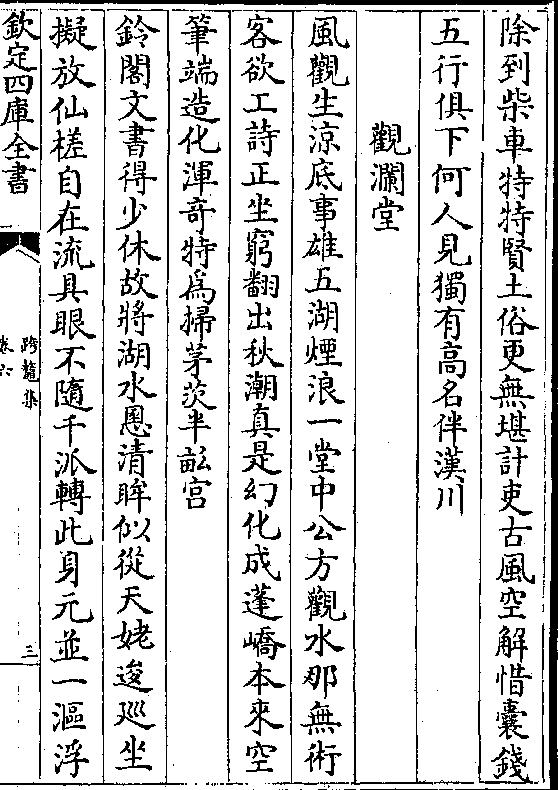 除到柴車特特賢土俗更無堪計吏古風空解惜囊錢
五行俱下何人見獨有高名伴漢川
觀瀾堂
風觀生涼底事雄五湖煙浪一堂中公方觀水那無術
客欲工詩正坐窮翻出秋潮真是幻化成蓬嶠本來空
筆端造化渾奇特為掃茅茨半畝宮
鈴閣文書得少休故將湖水慁清眸似從天姥逡巡坐
擬放仙槎自在流具眼不隨千派轉此身元並一漚浮
欽定四庫全書
跨鼇集
卷六
三